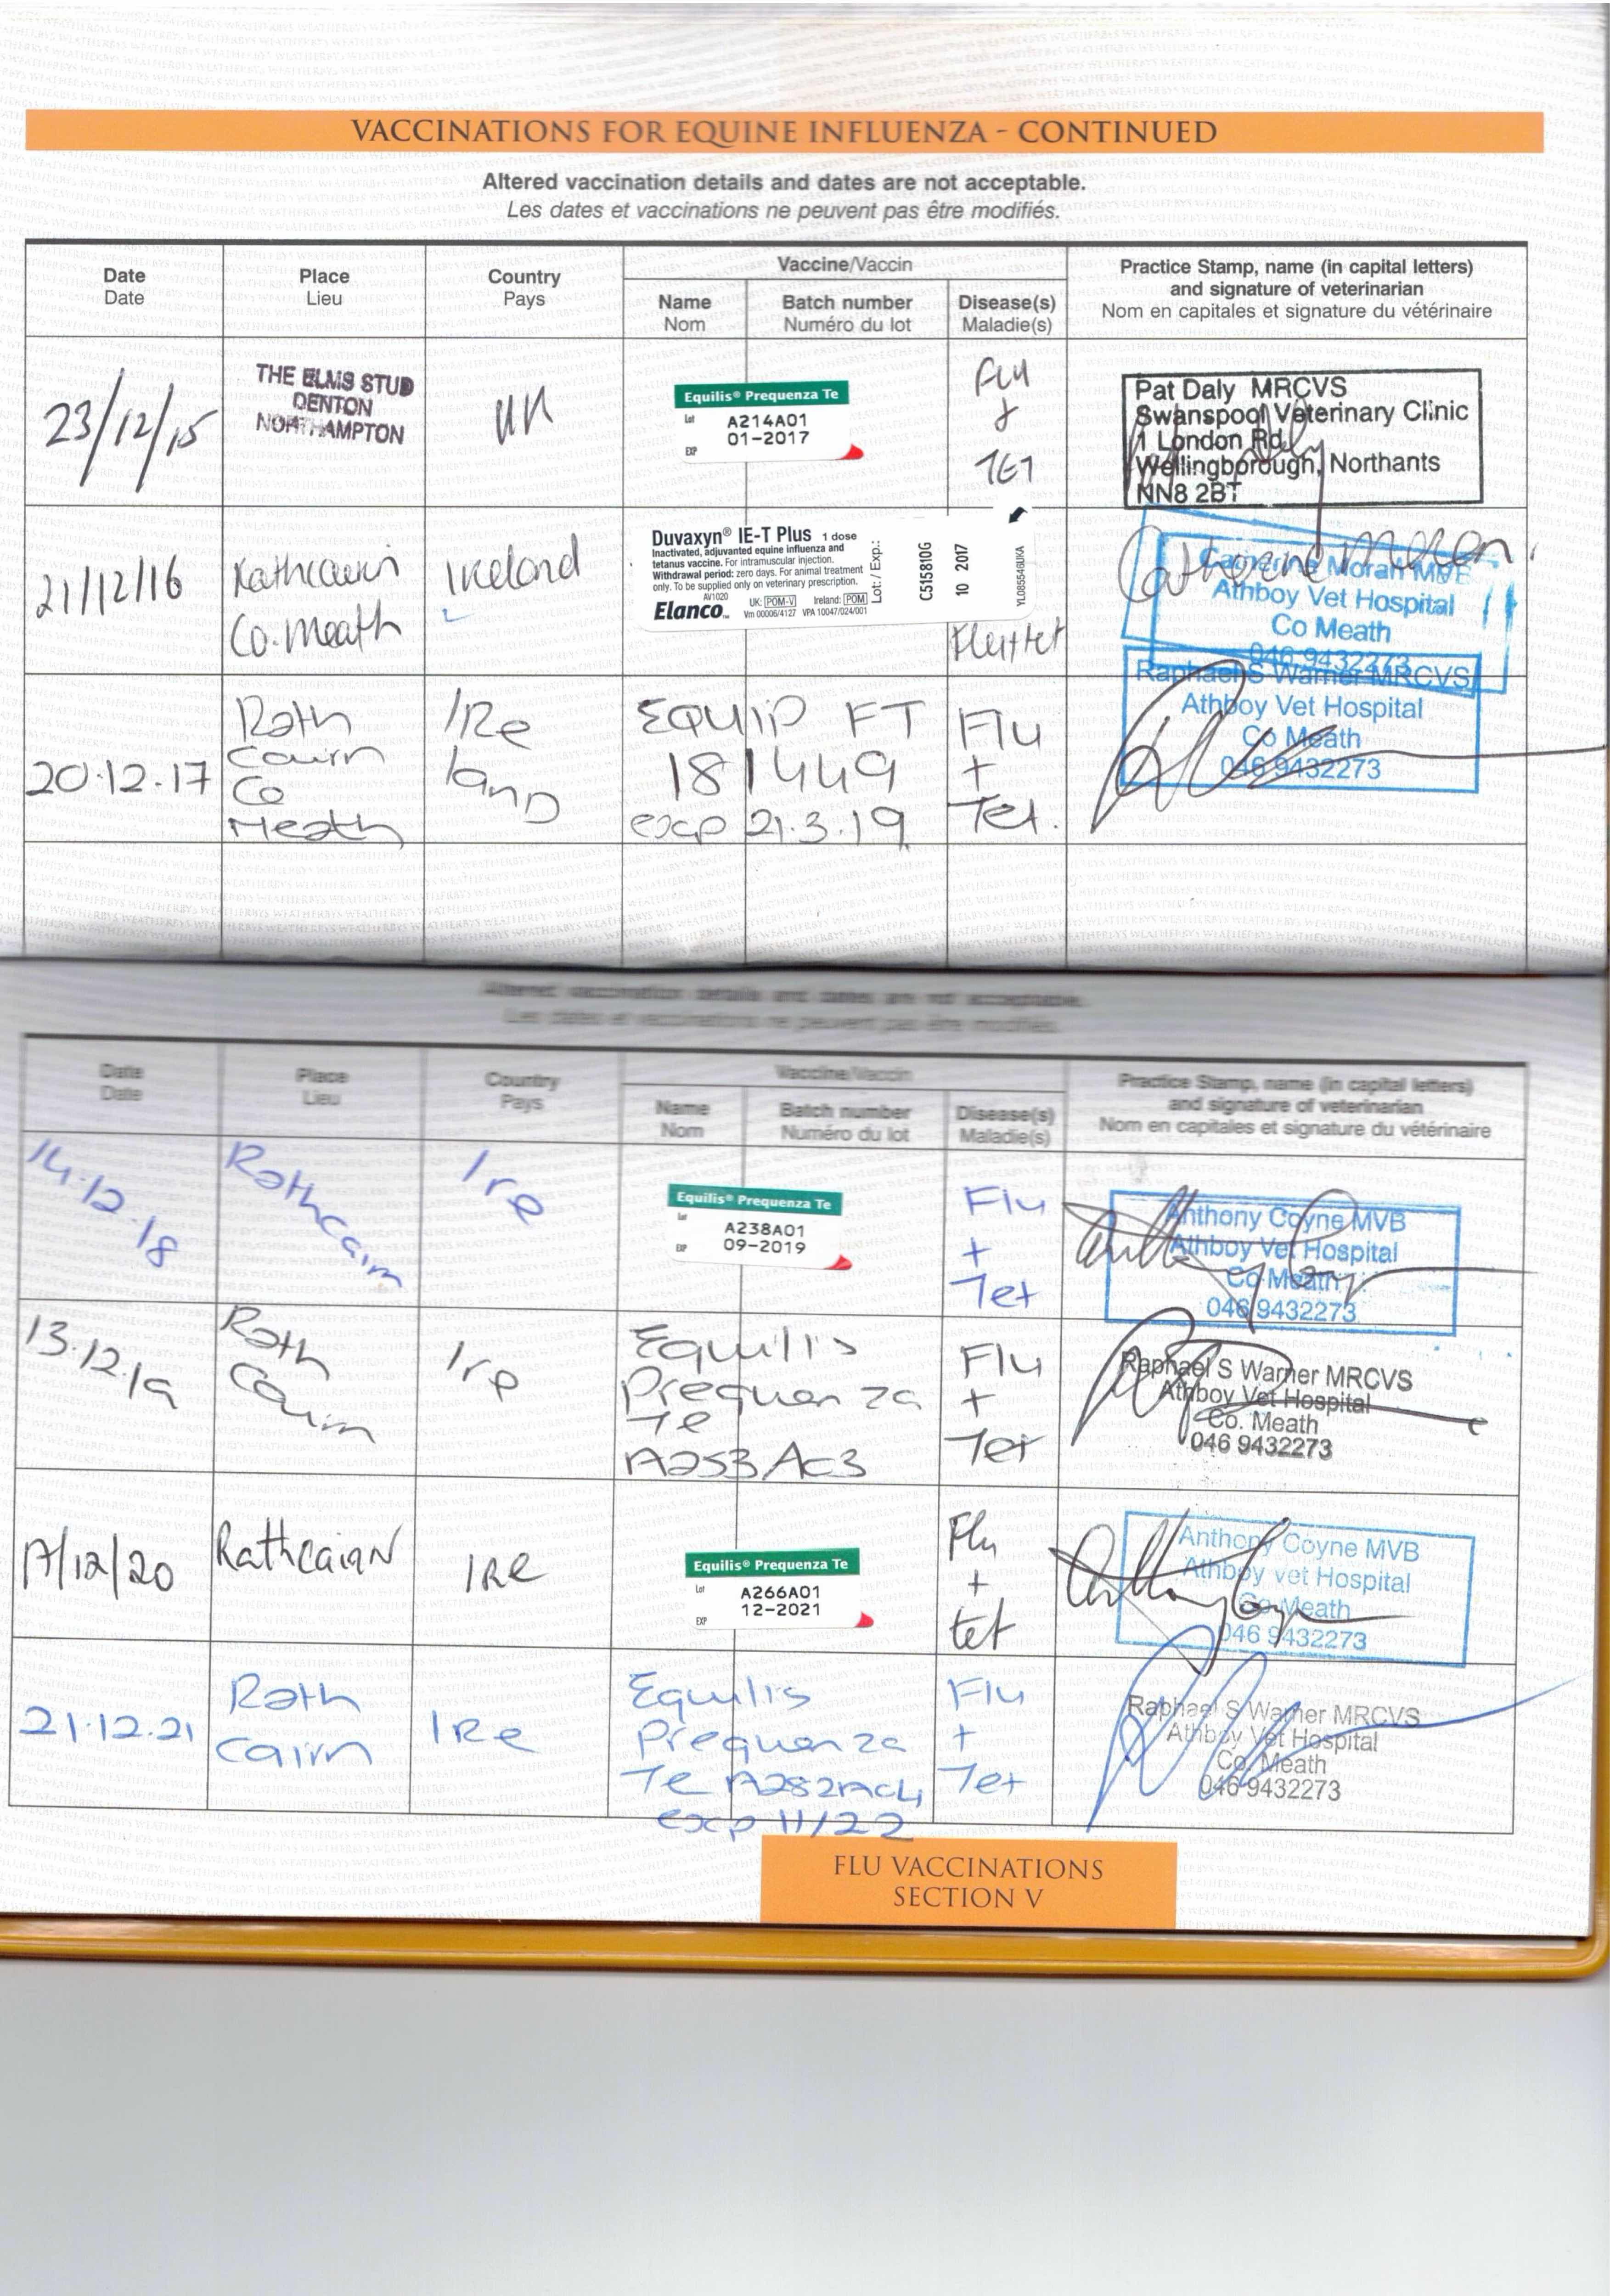 VACCINATIONS FOR EQUINE INFLUENZA - CONTINUED
Altered vaccination details and dates are not acceptable.
Les dates et vaccinations ne peuvent pas être modifiés.
Date
Date
Place
Lieu
Country
Pays
Vaccine/Vaccin
Name
Nom
Batch number
Numéro du lot
Disease(s)
Maladie(s)
Practice Stamp, name (in capital letters)
and signature of veterinarian
Nom en capitales et signature du vétérinaire
23/12/15
THE ELMS STUD
DENTON
NORTHAMPTON
UK
Equilis® Prequenza Te
Lot A214A01
01-2017
EXP
Flu
&
TET
Pat Daly MRCVS
Swanspool Veterinary Clinic
1 London Rd
Wellingborough, Northants
NN8 2BT
21/12/16
Rathcairn
Co. Meath
Ireland
Duvaxyn® IE-T Plus 1 dose
Inactivated, adjuvanted equine influenza and
tetanus vaccine. For intramuscular injection.
Withdrawal period: zero days. For animal treatment
only. To be supplied only on veterinary prescription.
AV1020 UK: POM-V Ireland: POM
Elanco™ Vm 00006/4127 VPA 10047/024/001
Lot / Exp.:
C515810G
10 2017
YL085546UKA
Flu+tet
Catherine Moran MVB
Athboy Vet Hospital
Co Meath
046 9432273
20.12.17
Rath
Cairn
Co
Meath
Ire
land
EQUIP FT
181449
exp 21.3.19
Flu
+
Tet.
Raphael S Warner MRCVS
Athboy Vet Hospital
Co Meath
046 9432273
Altered vaccination details and dates are not acceptable.
Les dates et vaccinations ne peuvent pas être modifiés.
Date
Date
Place
Lieu
Country
Pays
Vaccine/Vaccin
Name
Nom
Batch number
Numéro du lot
Disease(s)
Maladie(s)
Practice Stamp, name (in capital letters)
and signature of veterinarian
Nom en capitales et signature du vétérinaire
14.12.18
Rathcairn
Ire
Equilis® Prequenza Te
Lot A238A01
EXP 09-2019
Flu
+
Tet
Anthony Coyne MVB
Athboy Vet Hospital
Co Meath
046 9432273
13.12.19
Rath
Cairn
Ire
Equilis
Prequenza
Te
A253AC3
Flu
+
Tet
Raphael S Warner MRCVS
Athboy Vet Hospital
Co. Meath
046 9432273
17/12/20
Rathcairn
IRE
Equilis® Prequenza Te
Lot A266A01
12-2021
EXP
Flu
+
tet
Anthony Coyne MVB
Athboy vet Hospital
Co Meath
046 9432273
21.12.21
Rath
Cairn
IRe
Equilis
Prequenza
Te A282AC4
exp 11/22
Flu
+
Tet
Raphael S Warner MRCVS
Athboy Vet Hospital
Co. Meath
046 9432273
FLU VACCINATIONS
SECTION V